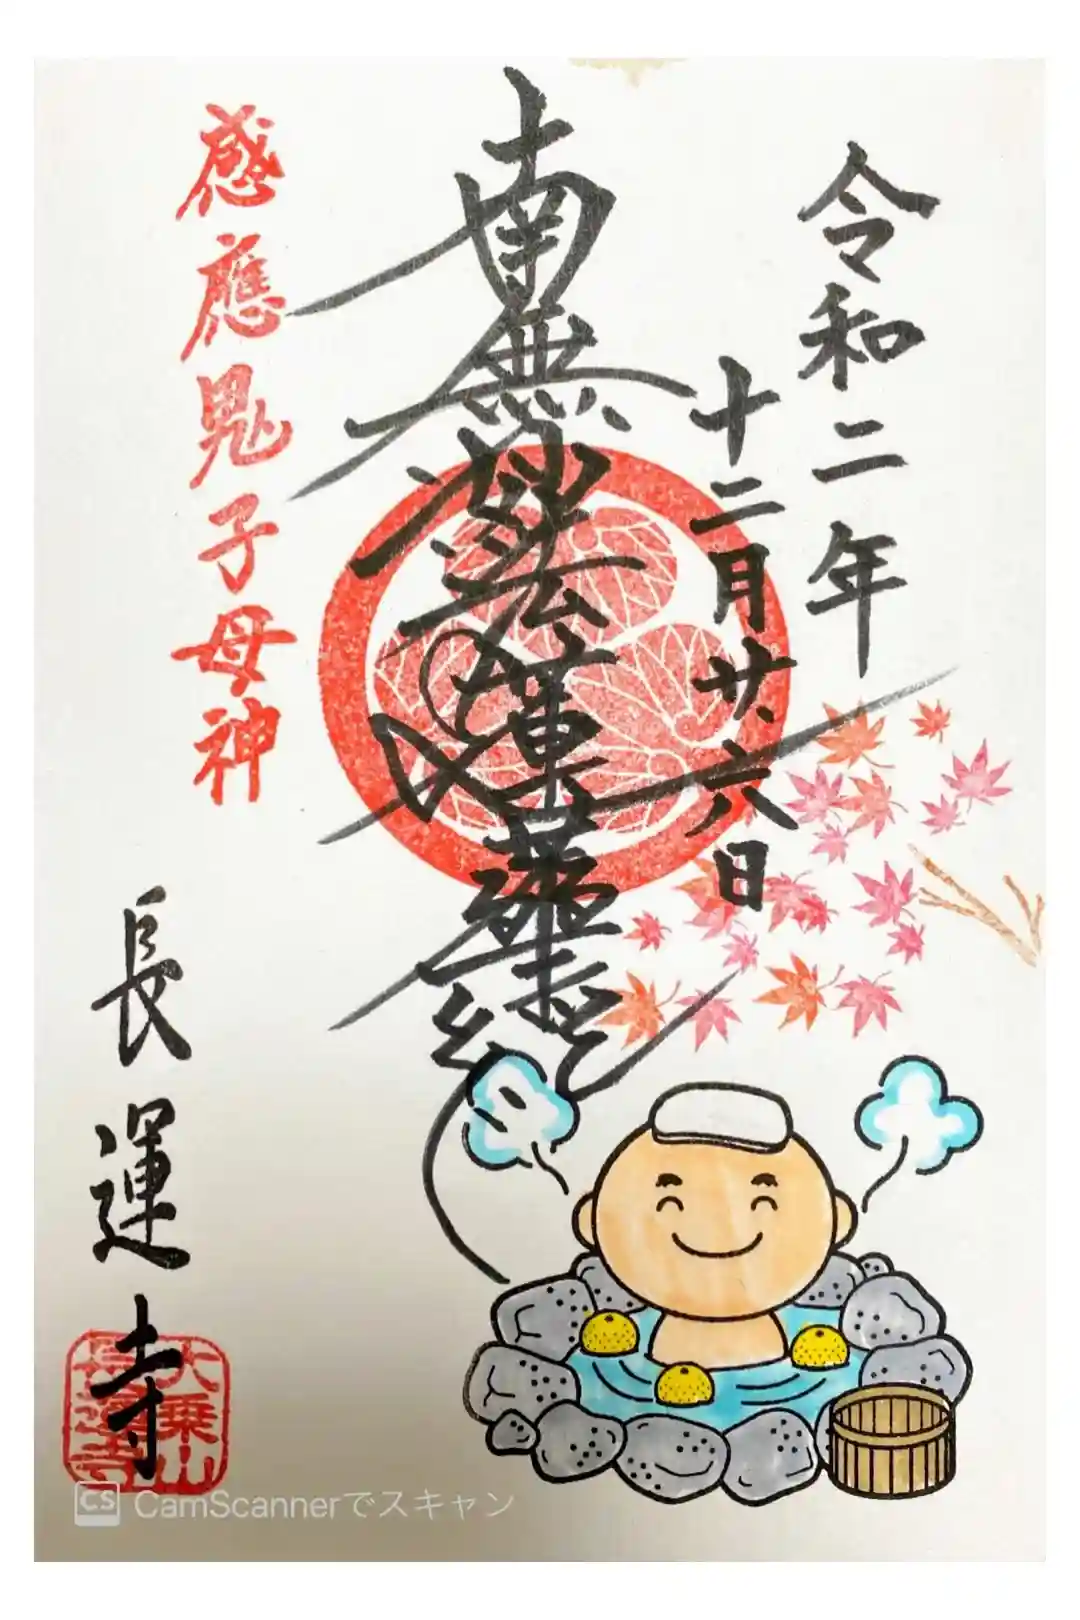 令和二年
十二月廿六日
南無妙法蓮華経
感應鬼子母神
長運寺
大乗山
長運寺
CS CamScannerでスキャン